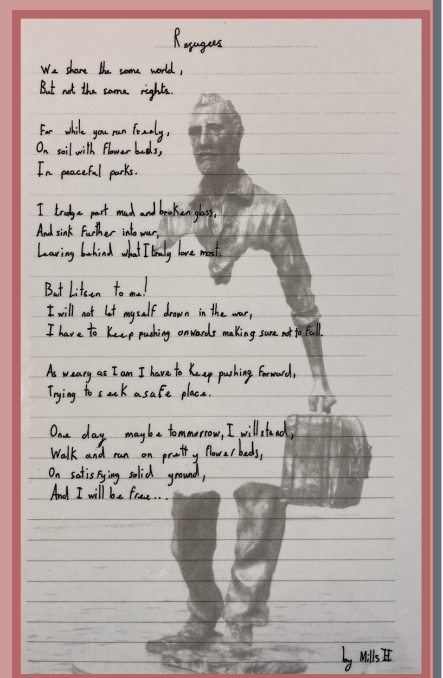 Refugees
We share the same world,
But not the same rights.
For while you run freely,
On soil with flower beds,
In peaceful parks.
I trudge part mud and broken glass,
And sink further into war,
Leaving behind what I truly love most.
But Litsen to me!
I will not let myself drown in the war,
I have to keep pushing onwards making sure not to fall.
As weary as I am I have to keep pushing forward,
Trying to seek a safe place.
One day maybe tommorrow, I will stand,
Walk and run on pretty flower beds,
On satisfying solid ground,
And I will be free...
by Mills H